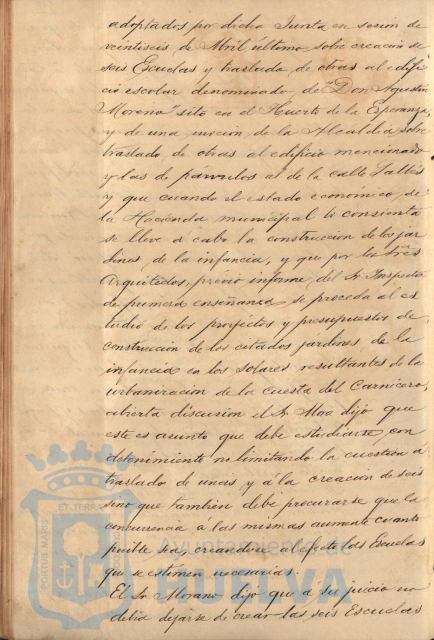 adoptados por dicha Junta en sesion de
veintiseis de Abril último sobre creación de
seis Escuelas y traslado de otras al edifi-
cio escolar denominado de "Don Agustin
Moreno" sito en el Huerto de la Esperanza,
y de una mocion de la Alcaldia sobre
traslado de otras al edificio mencionado
y las de párvulos al de la calle
y que cuando el estado economico de
la Hacienda municipal lo consienta
se lleve á cabo la construccion de los jar
dines de la infancia, y que por los Sres
Arquitectos, previo informe del Sr Inspector
de primera enseñanza se proceda al es
tudio de los proyectos y presupuestos de
construccion de los citados jardines de la
infancia en los solares resultantes de la
urbanizacion de la cuesta del Carnicero,
abierta discusion el Sr dijo que
este es asunto que debe estudiarse con
detenimiento no limitando la cuestion á
traslado de unas y á la creacion de seis
sino que tambien debe procurarse que la
concurrencia a las mismas aumente cuanto
posible sea, creandose al efecto las Escuelas
que se estimen necesarias.
El Sr Morano dijo que á su juicio no
debia dejarse de crear las seis Escuelas
PORTUS MARIS ET TERRAE
Ayuntamiento de
HUELVA